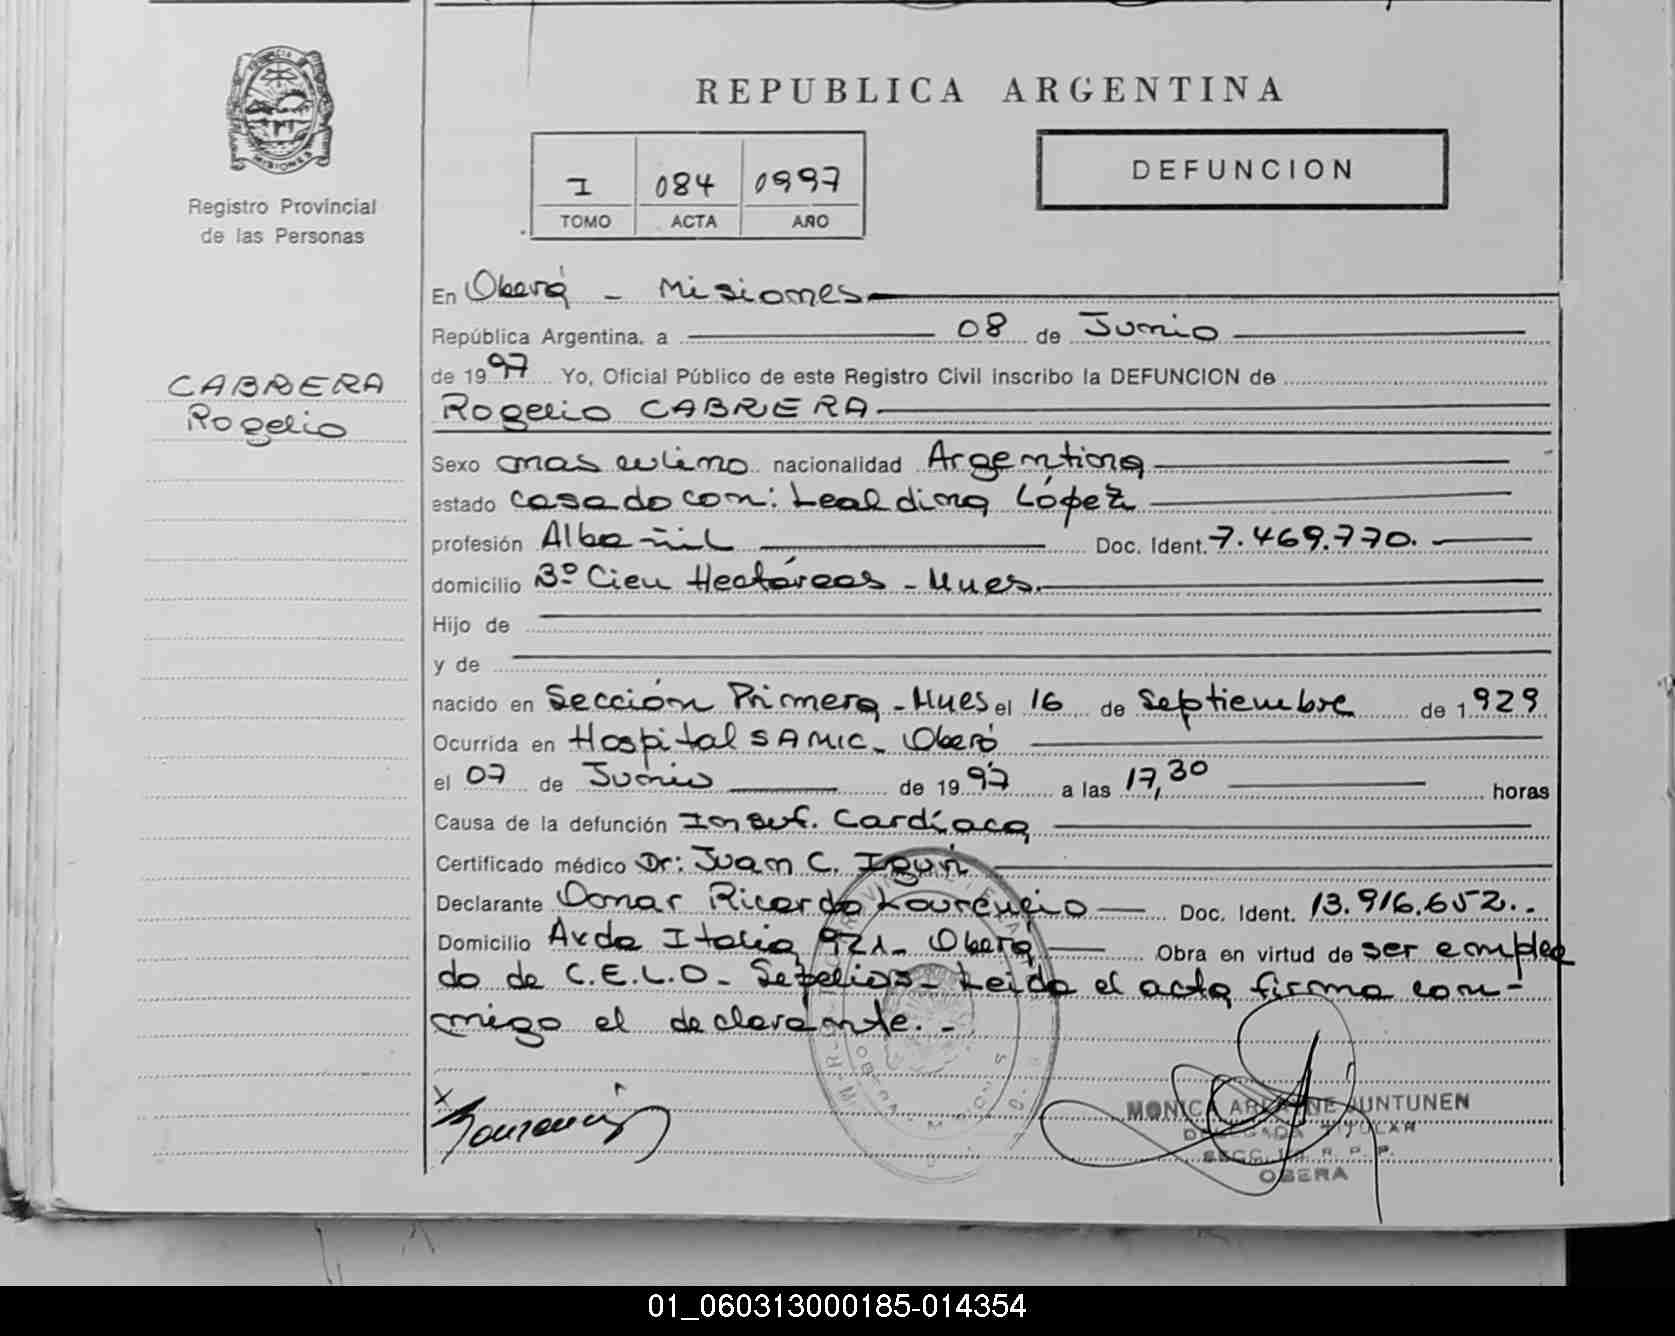 REPUBLICA ARGENTINA
PROVINCIA
MISIONES
Registro Provincial
de las Personas
I 084 0997
TOMO ACTA AÑO
DEFUNCION
CABRERA
Rogelio
En Oberá - Misiones
República Argentina, a 08 de Junio
de 1997 Yo, Oficial Público de este Registro Civil inscribo la DEFUNCION de
Rogelio CABRERA.
Sexo masculino nacionalidad Argentina
estado casado con: Lealdina López
profesión Albañil Doc. Ident. 7.469.770.
domicilio Bº Cien Hectáreas - Mnes.
Hijo de
y de
nacido en Sección Primera - Mnes el 16 de Septiembre de 1929
Ocurrida en Hospital SAMIC - Oberá
el 07 de Junio de 1997 a las 17,30 horas
Causa de la defunción Insuf. Cardíaca
Certificado médico Dr: Juan C.
Declarante Omar Ricardo Lourencio Doc. Ident. 13.916.652..
Domicilio Avda Italia 921 - Oberá Obra en virtud de ser emplea
do de C.E.L.O - Sepelios - Leida el acta firma con-
migo el declarante. -
MONICA ARIADNE JUNTUNEN
DELEGADA TITULAR
SECC. 1ra R. P. P.
OBERA
01_060313000185-014354